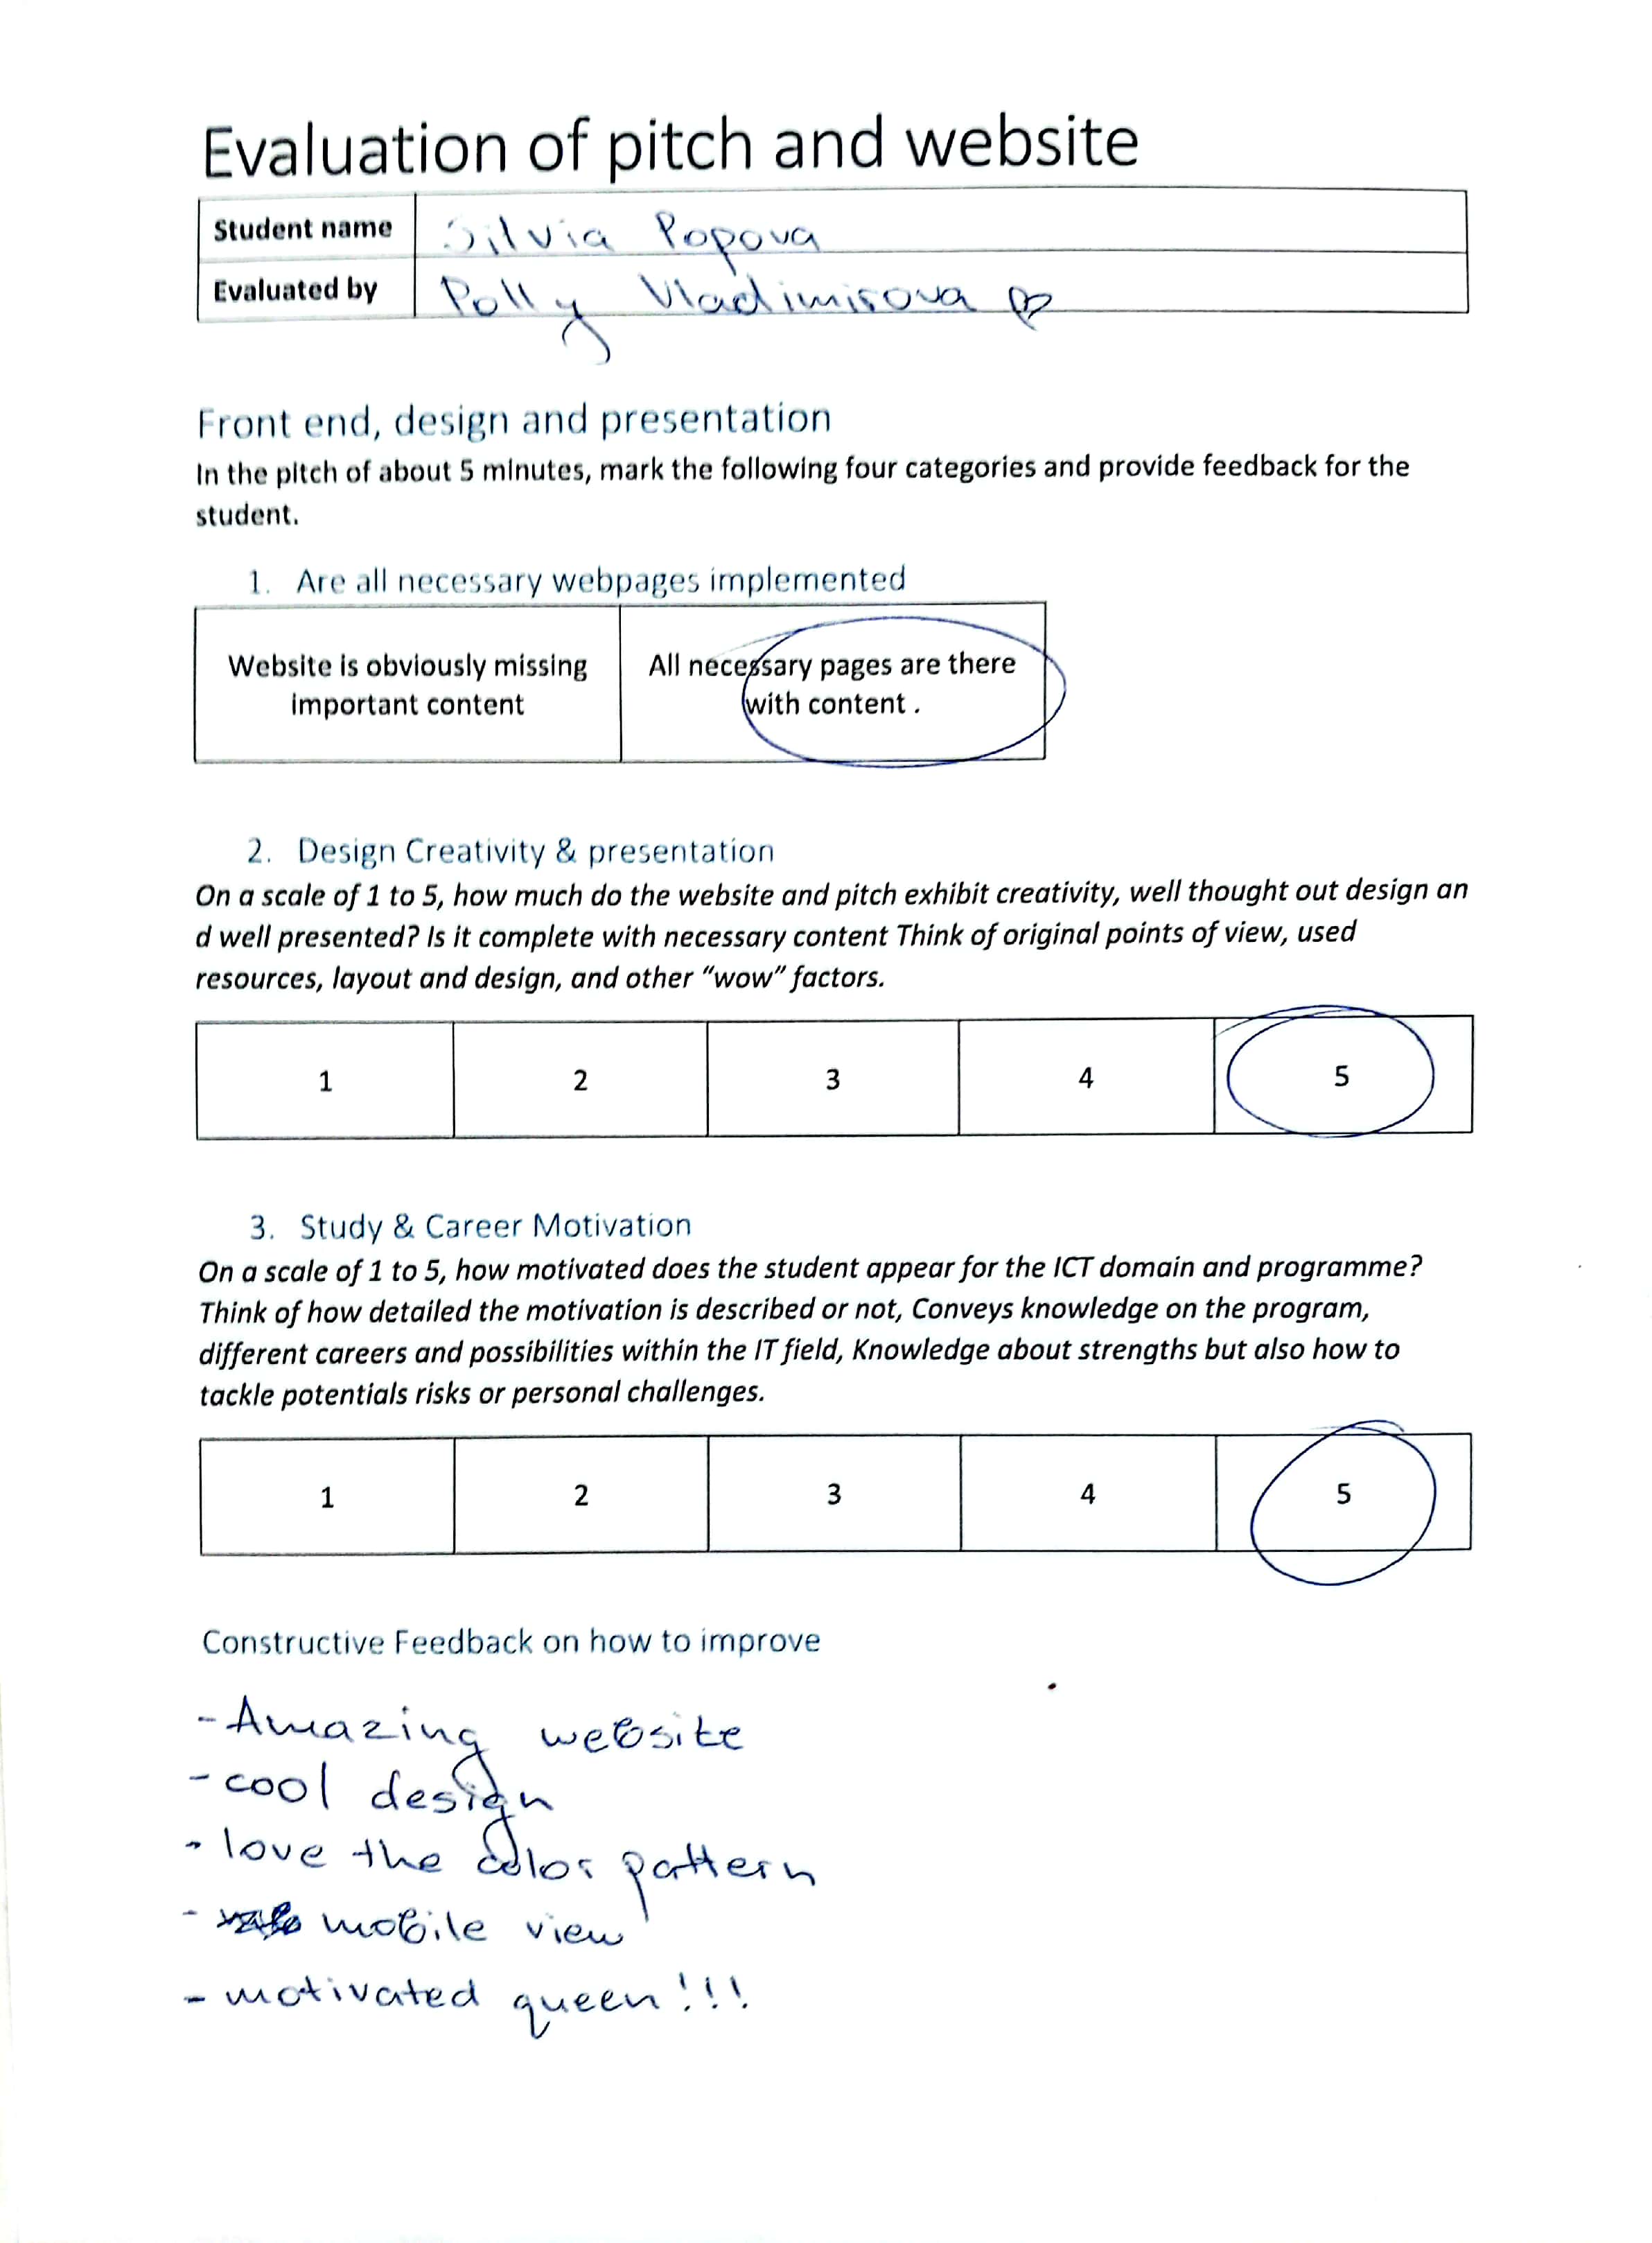 Evaluation of pitch and website
Student name Silvia Popova
Evaluated by Polly Vladimirova
Front end, design and presentation
In the pitch of about 5 minutes, mark the following four categories and provide feedback for the
student.
1. Are all necessary webpages implemented
Website is obviously missing
important content
All necessary pages are there
with content .
2. Design Creativity & presentation
On a scale of 1 to 5, how much do the website and pitch exhibit creativity, well thought out design an
d well presented? Is it complete with necessary content Think of original points of view, used
resources, layout and design, and other “wow” factors.
1 2 3 4 5
3. Study & Career Motivation
On a scale of 1 to 5, how motivated does the student appear for the ICT domain and programme?
Think of how detailed the motivation is described or not, Conveys knowledge on the program,
different careers and possibilities within the IT field, Knowledge about strengths but also how to
tackle potentials risks or personal challenges.
1 2 3 4 5
Constructive Feedback on how to improve
- Amazing website
- cool design
- love the color pattern
- mobile view
- motivated queen!!!